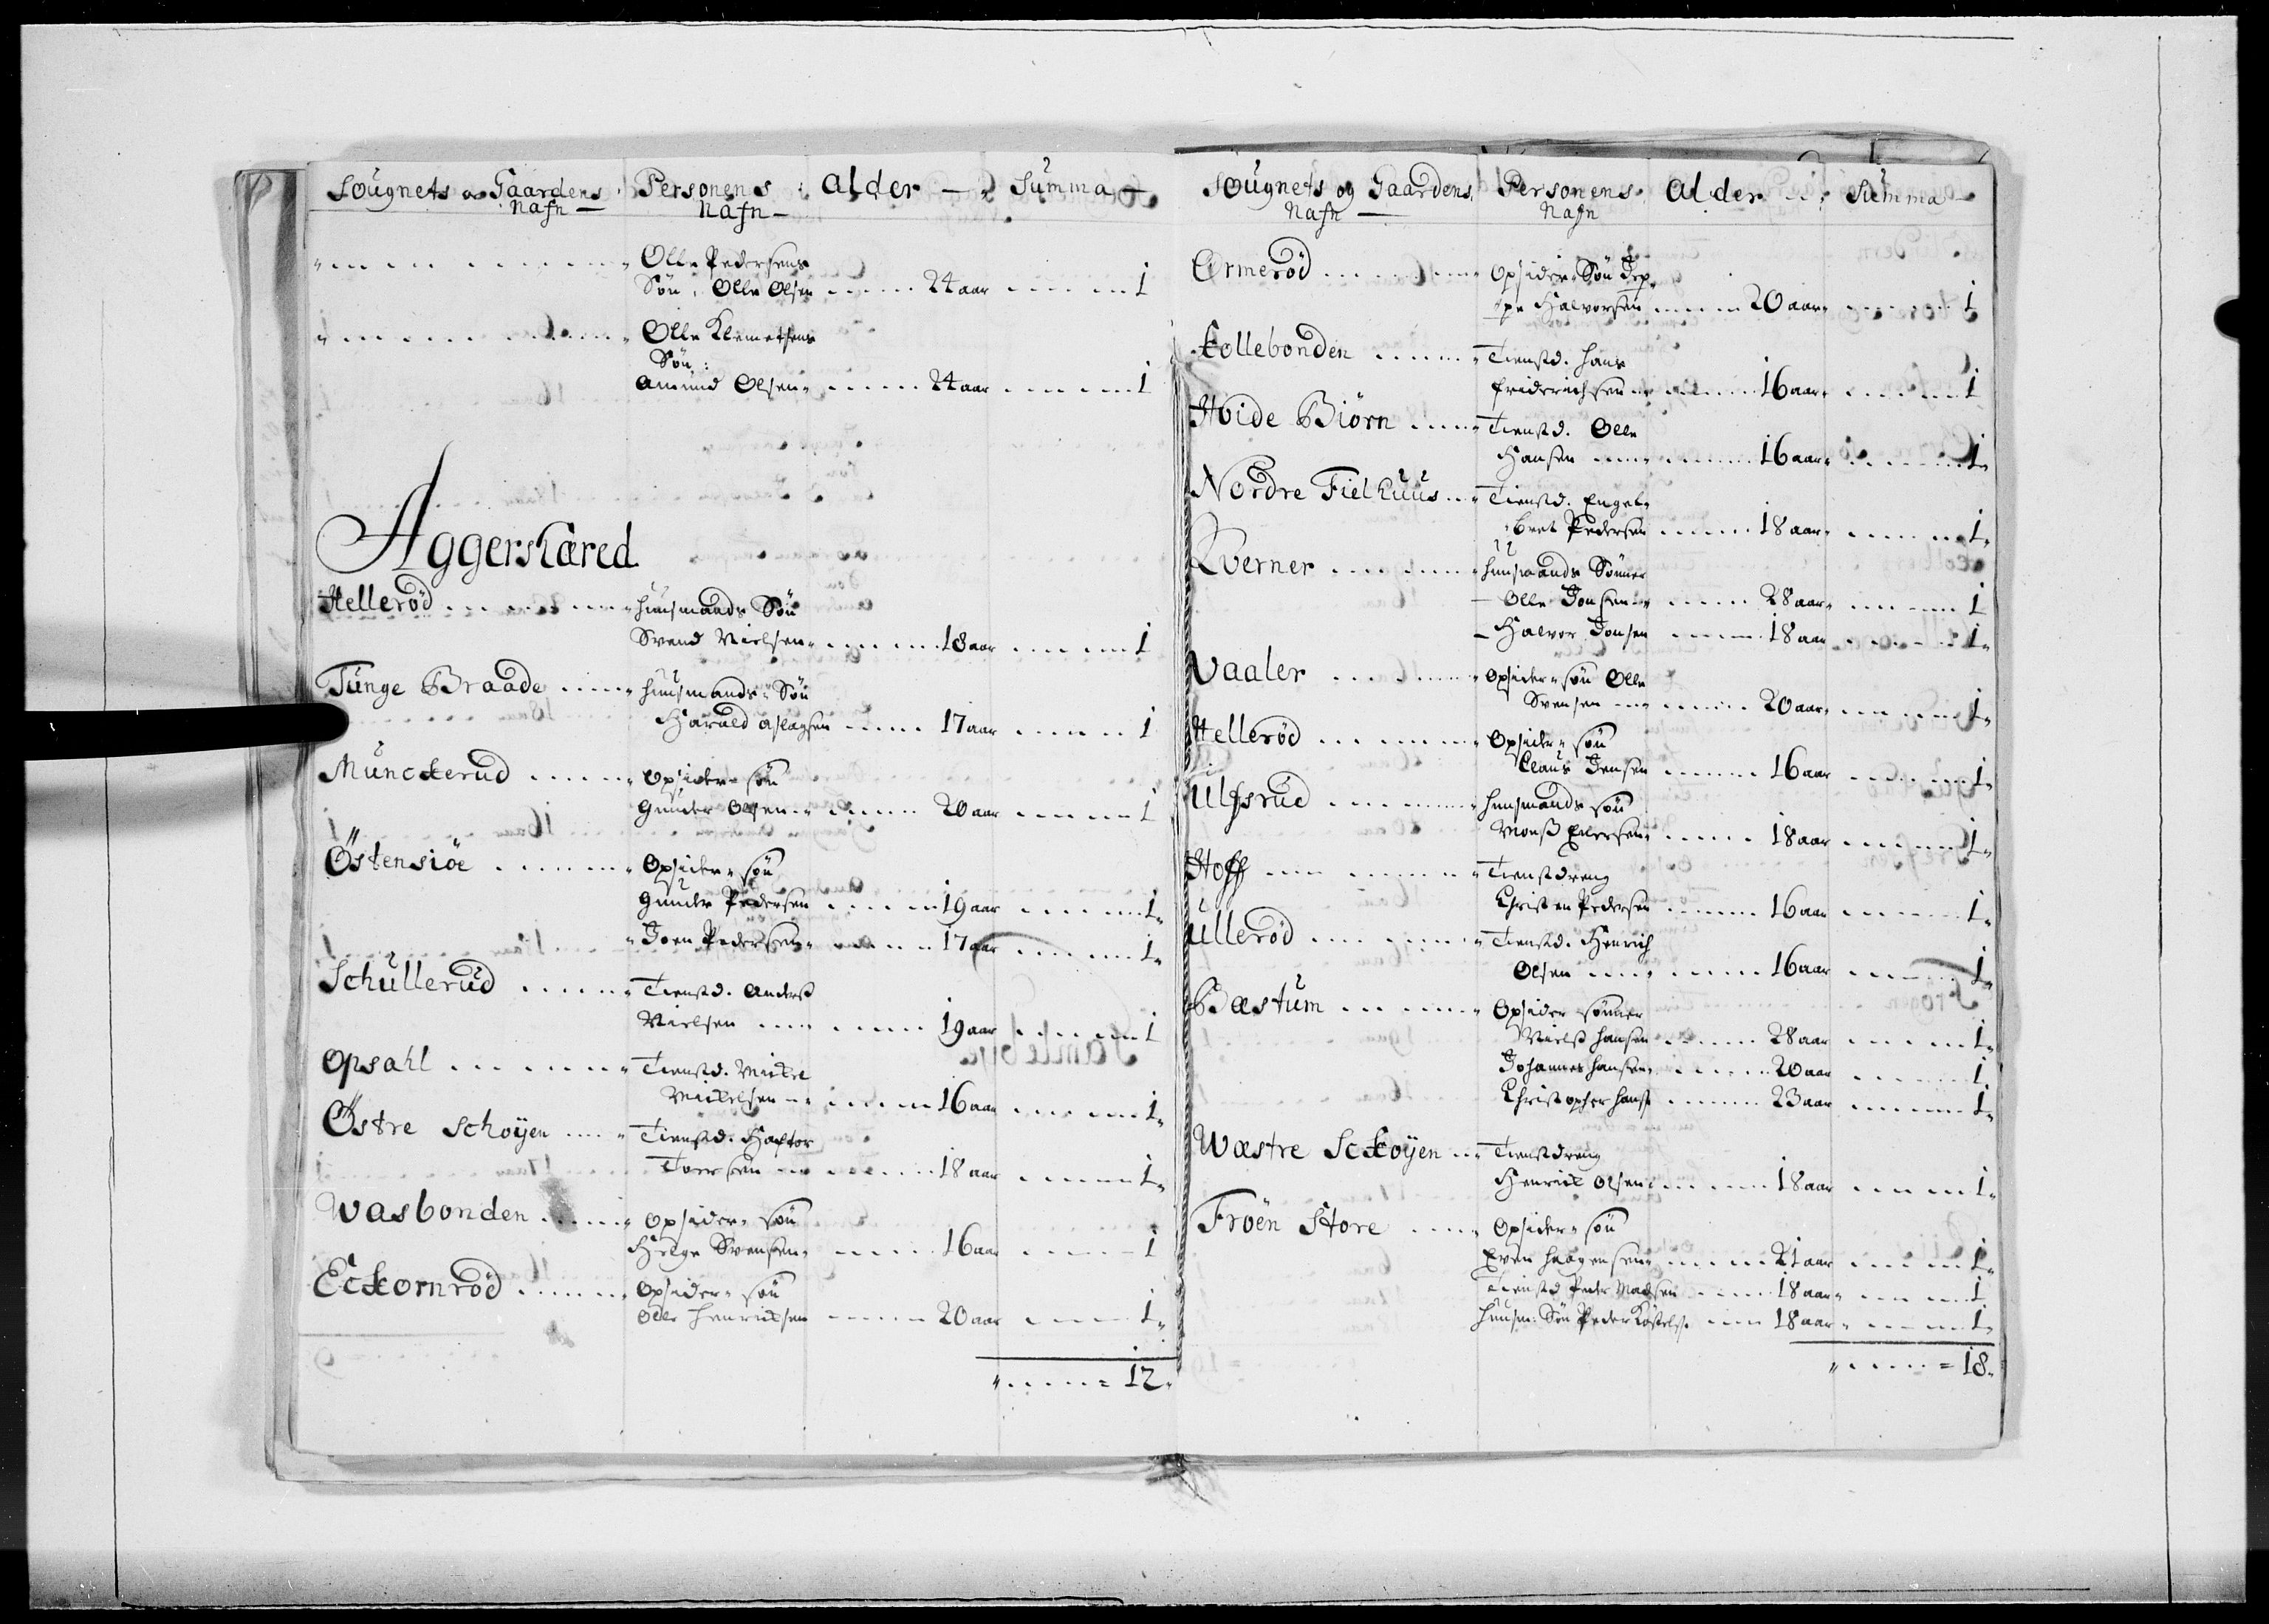 Sougnets og Gaardens Personens Alder Summa
Nafn Nafn
Olle Pedersens
Søn, Olle Olsen 24 aar 1
Olle Klemetsens
Søn:
Amund Olsen 24 aar 1
Aggersharred
Hellerød huusmands Søn
Svend Nielsen 18 aar 1
Tunge Braade huusmands Søn
Harald Aslagsen 17 aar 1
Munckerud Opsider Søn
Gunder Olsen 20 aar 1
Østensiøe Opsider Søn
Gunder Pedersen 19 aar 1
Joen Pedersen 17 aar 1
Schullerud Tienstd. Anders
Nielsen 19 aar 1
Opsahl Tienstd. Mickel
Mickelsen 16 aar 1
Østre Schøyen Tienstd. Haftor
Toersen 18 aar 1
Wasbonden Opsider Søn
Helge Svensen 16 aar 1
Eckornrød Opsider Søn
Olle Henricksen 20 aar 1
= 12
Sougnets og Gaardens Personens Alder Summa
Nafn Nafn
Ormerød Opsider Søn Jep
pe Halvorsen 20 aar 1
Kollebonden Tienstd. Hans
Friderichsen 16 aar 1
Hvide Biørn Tienstd. Olle
Hansen 16 aar 1
Nordre Fielhuus Tienstd. Engel
bret Pedersen 18 aar 1
Kverner huusmands Sønner
Olle Jonsen 28 aar 1
Halvor Jonsen 18 aar 1
Vaaler Opsider Søn Olle
Svensen 20 aar 1
Hellerød Opsider Søn
Claus Jensen 16 aar 1
Ulfsrud huusmands Søn
Monß Ellersen 18 aar 1
Hoff Tienstdreng
Christen Pedersen 16 aar 1
Ullerød Tienstd. Henrich
Olsen 16 aar 1
Bæstum Opsider Sønner
Nielß Hansen 28 aar 1
Johannes Hansen 20 aar 1
Christopher Hanß 23 aar 1
Wæstre Sckøyen Tienstdreng
Henrick Olsen 18 aar 1
Frøen Store Opsider Søn
Even Haagensen 21 aar 1
Tienstd Peder Madsen 18 aar 1
Huusm: Søn Peder 18 aar 1
= 18